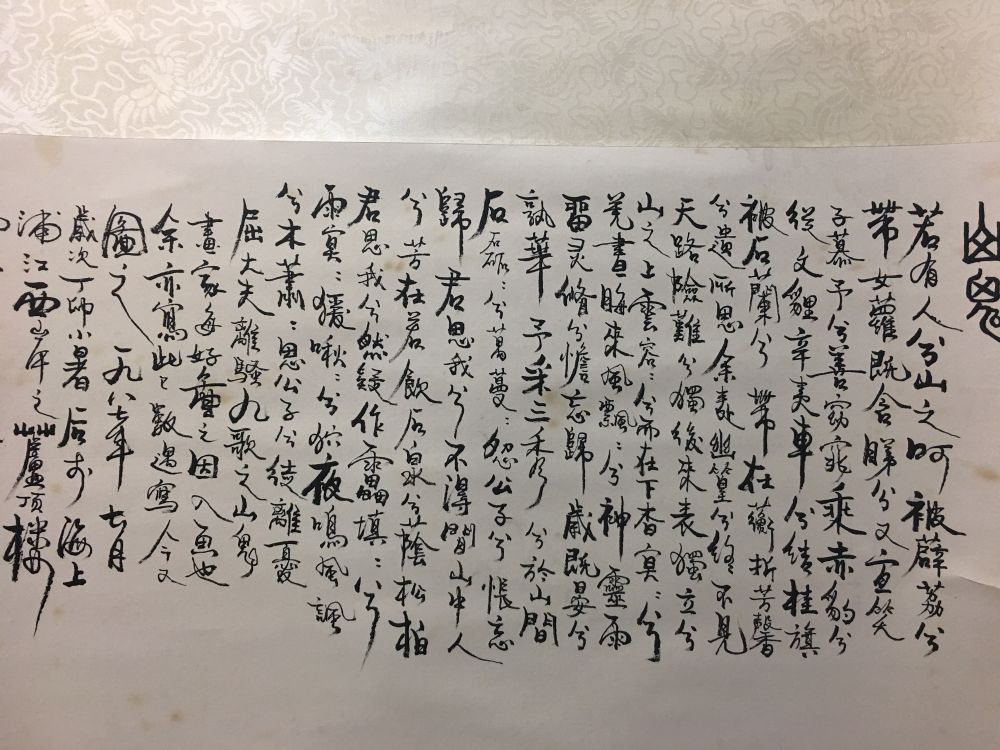 山鬼
若有人兮山之阿被薜荔兮
带女蘿既含睇兮又宜笑
子慕予兮善窈窕乘赤豹兮
從文貍辛夷車兮結桂旗
被石蘭兮帶杜衡折芳馨
兮遺所思余處幽篁兮終不見
天路險難兮獨後來表獨立兮
山之上雲容：兮而在下杳冥：兮
羌晝晦東風飄：兮神靈雨
留灵脩兮憺忘歸歲既晏兮
孰華予采三秀兮於山間
石磊：兮葛蔓：怨公子兮悵忘
歸君思我兮不得閒山中人
兮芳杜若飲石泉兮蔭松柏
君思我兮然疑作靁填：兮
雨冥：猨啾：兮狖夜鳴風颯
兮木蕭：思公子兮徒離憂
屈大夫離騷九歌之山鬼
畫家每好畫之因入画也
余亦寫此已數遍寫今又
圖之一九八七年七月
歲次丁卯小暑后於海上
浦江西岸之廬頂樓